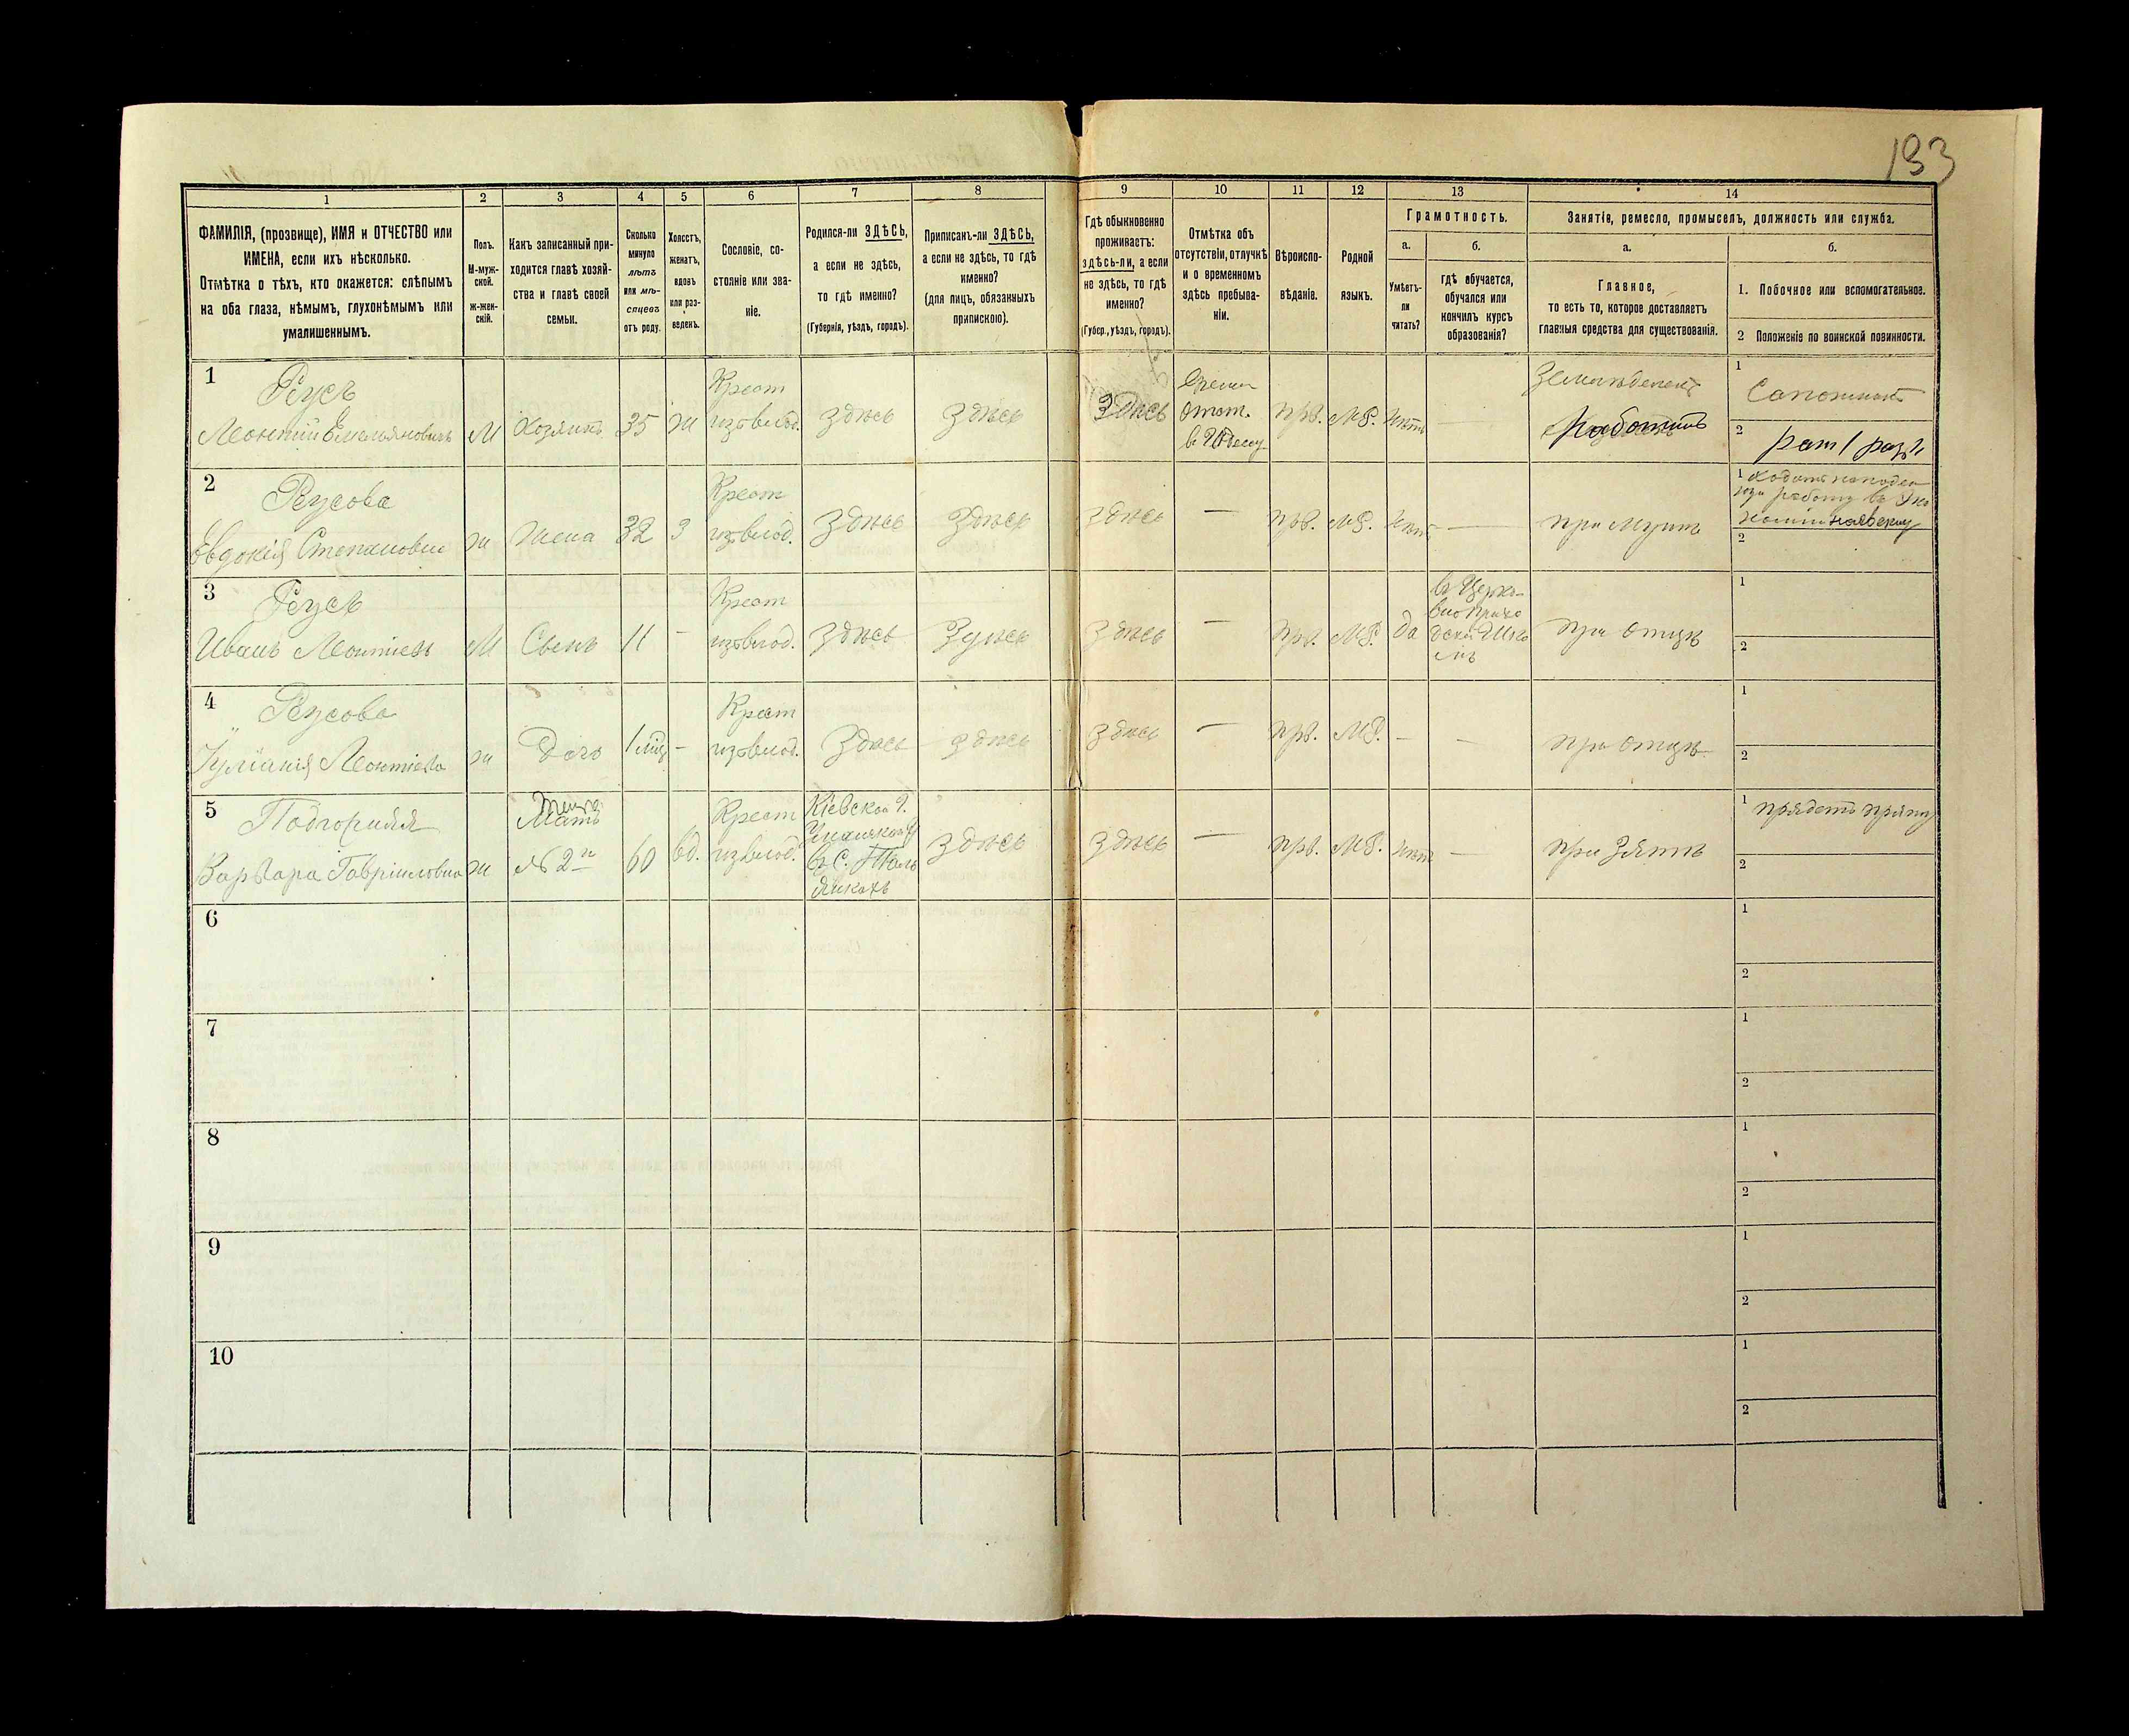 193
1
2
3
4
5
6
7
8
9
10
11
12
13
14
ФАМИЛІЯ, (прозвище), ИМЯ и ОТЧЕСТВО или
ИМЕНА, если ихъ нѣсколько.
Отмѣтка о тѣхъ, кто окажется: слѣпымъ
на оба глаза, нѣмымъ, глухонѣмымъ или
умалишеннымъ.
Полъ.
М-муж-
ской.
Ж-жен-
скій.
Какъ записанный при-
ходится главѣ хозяй-
ства и главѣ своей
семьи.
Сколько
минуло
лѣтъ
или мѣ-
сяцевъ
отъ роду.
Холостъ,
женатъ,
вдовъ
или раз-
веденъ.
Сословіе, со-
стояніе или зва-
ніе.
Родился-ли ЗДѢСЬ,
а если не здѣсь,
то гдѣ именно?
(Губернія, уѣздъ, городъ).
Приписанъ-ли ЗДѢСЬ,
а если не здѣсь, то гдѣ
именно?
(для лицъ, обязанныхъ
припискою).
Гдѣ обыкновенно
проживаетъ:
здѣсь-ли, а если
не здѣсь, то гдѣ
именно?
(Губер., уѣздъ, городъ).
Отмѣтка объ
отсутствіи, отлучкѣ
и о временномъ
здѣсь пребыва-
ніи.
Вѣроиспо-
вѣданіе.
Родной
языкъ.
Грамотность.
а.
Умѣетъ-
ли
читать?
б.
гдѣ обучается,
обучался или
кончилъ курсъ
образованія?
Занятія, ремесло, промыселъ, должность или служба.
а.
Главное,
то есть то, которое доставляетъ
главныя средства для существованія.
б.
1. Побочное или вспомогательное.
2 Положеніе по воинской повинности.
1
Русъ
Леонтій Емельяновичъ
М
Хозяинъ
35
ж
Крест
изъ влад.
здѣсь
здѣсь
здѣсь
отст.
в Одессу
прв.
МР.
нѣтъ
—
Работникъ
1
Сапожникъ
2
рат 1 раз
2
Русова
Евдокія Степановна
ж
жена
32
З
Крест
изъ влад.
здѣсь
здѣсь
здѣсь
—
прв.
МР.
нѣтъ
—
при мужѣ
1
2
3
Русъ
Иванъ Леонтіевъ
М
Сынъ
11
-
Крест
изъ влад.
здѣсь
здѣсь
здѣсь
—
прв.
МР.
да
въ Церко-
вно Прихо
дской Шко
лѣ
при отцѣ
1
2
4
Русова
Леонтіева
ж
Дочь
1 мѣс
-
Крест
изъ влад.
здѣсь
здѣсь
здѣсь
—
прв.
МР.
-
-
при отцѣ
1
2
5
Подгорняя
Варвара Гавріиловна
ж
Мать
№ 2й
60
вд.
Крест
изъ влад.
Кіевской г.
здѣсь
здѣсь
—
прв.
МР.
нѣтъ
—
при зятѣ
1
прядетъ пряжу
2
6
1
2
7
1
2
8
1
2
9
1
2
10
1
2